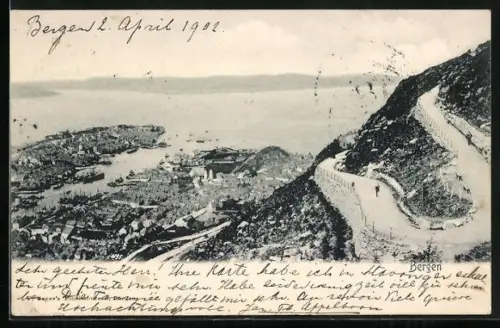 Bergen 2. April 1902.
Bergen
Sehr geehrter Herr! Ihre Karte habe ich in Stavanger erhal
ten und freute mich sehr. Habe leider wenig Zeit viel zu sehen
gefällt mir sehr. An revoir Viele Grüsse
Hochachtungsvoll